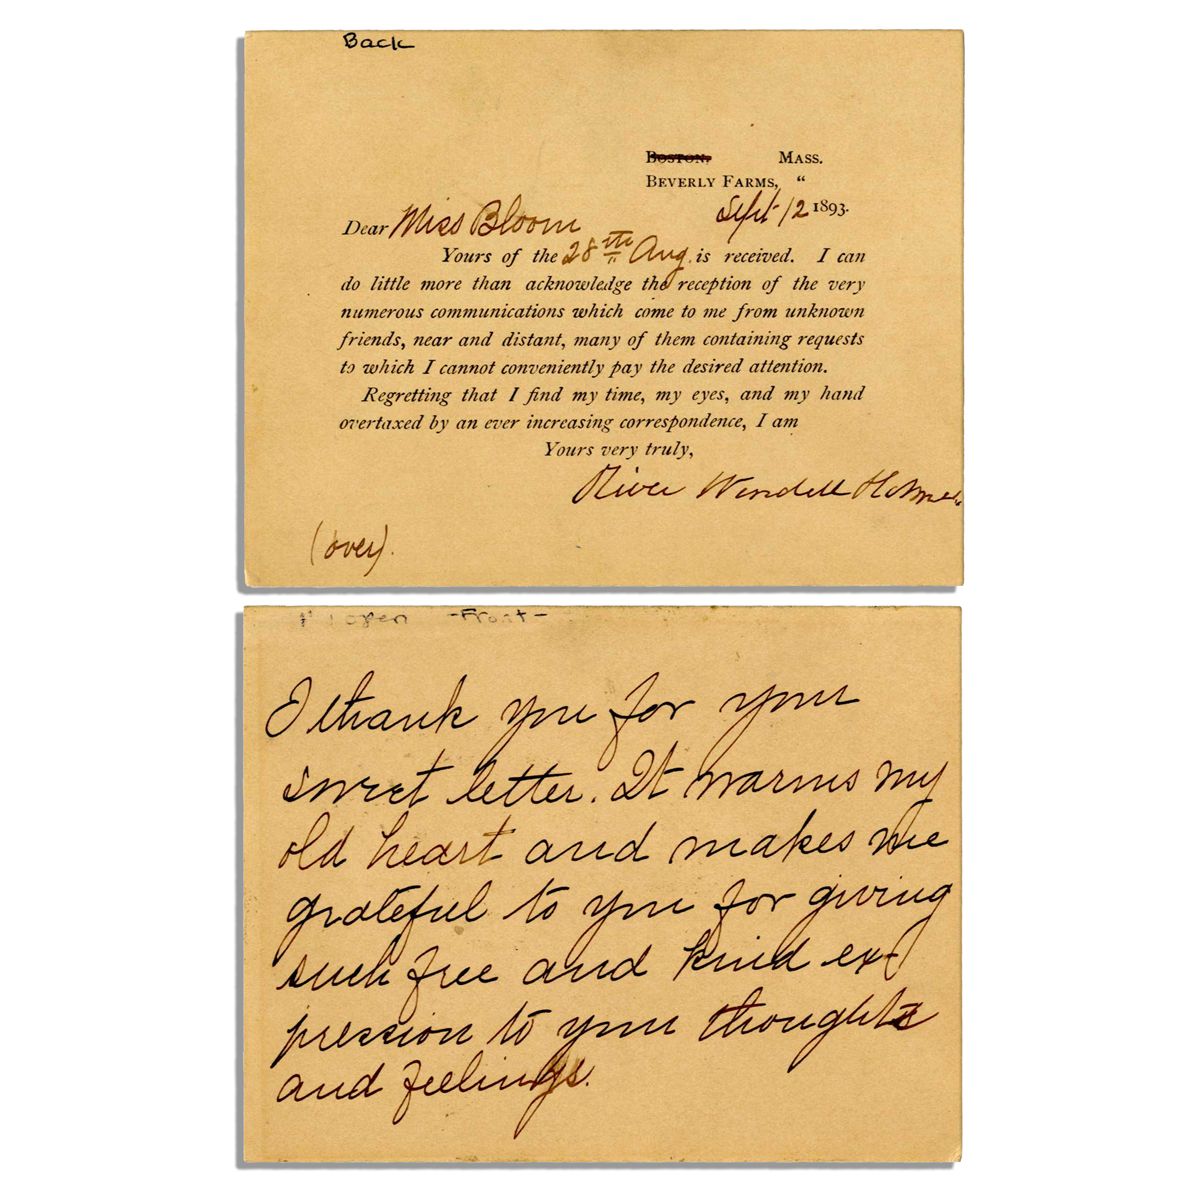 Back
BOSTON, MASS.
BEVERLY FARMS, "
Sept. 12 1893.
Dear Miss Bloom
Yours of the 28th Aug. is received. I can
do little more than acknowledge the reception of the very
numerous communications which come to me from unknown
friends, near and distant, many of them containing requests
to which I cannot conveniently pay the desired attention.
Regretting that I find my time, my eyes, and my hand
overtaxed by an ever increasing correspondence, I am
Yours very truly,
Oliver Wendell Holmes
(over).
-Front-
I thank you for your
sweet letter. It warms my
old heart and makes me
grateful to you for giving
such free and kind ex-
pression to your thoughts
and feelings.